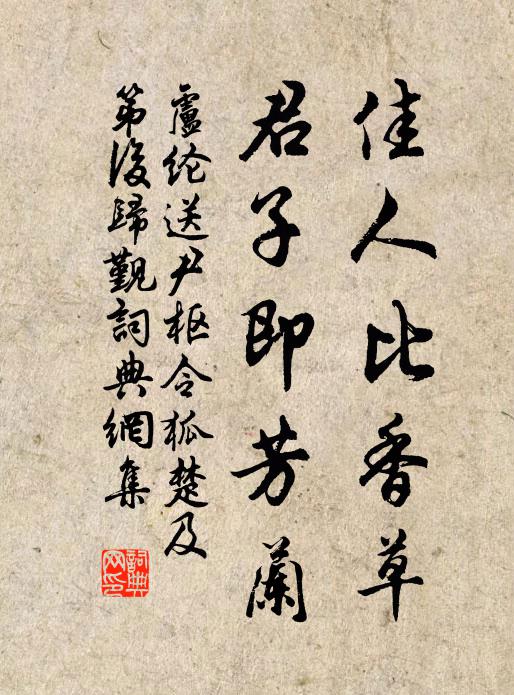 佳人比香草
君子即芳蘭
盧纶送尹枢令狐楚及
第後歸覲詞典網集
詞典
网印